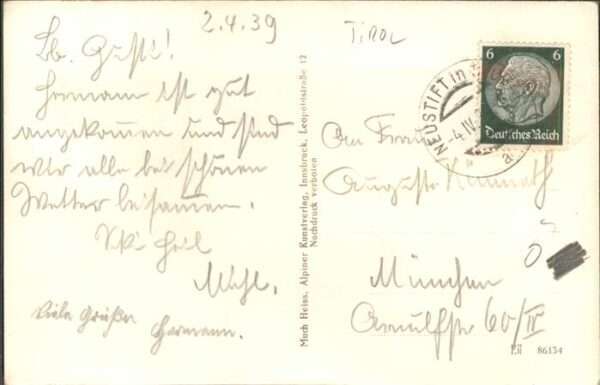 2.4.39
Tirol
Lb. Gusti!
Hermann ist gut
angekommen und sind
wir alle bei schönen
Wetter beisammen.
Ski Heil
Viele Grüße
Hermann.
Much Heiss, Alpiner Kunstverlag, Innsbruck, Leopoldstraße 12
Nachdruck verboten
6 6
Deutsches Reich
NEUSTIFT in
-4.IV
An Frau
Auguste
München
Arnulfstr 60/IV
86134